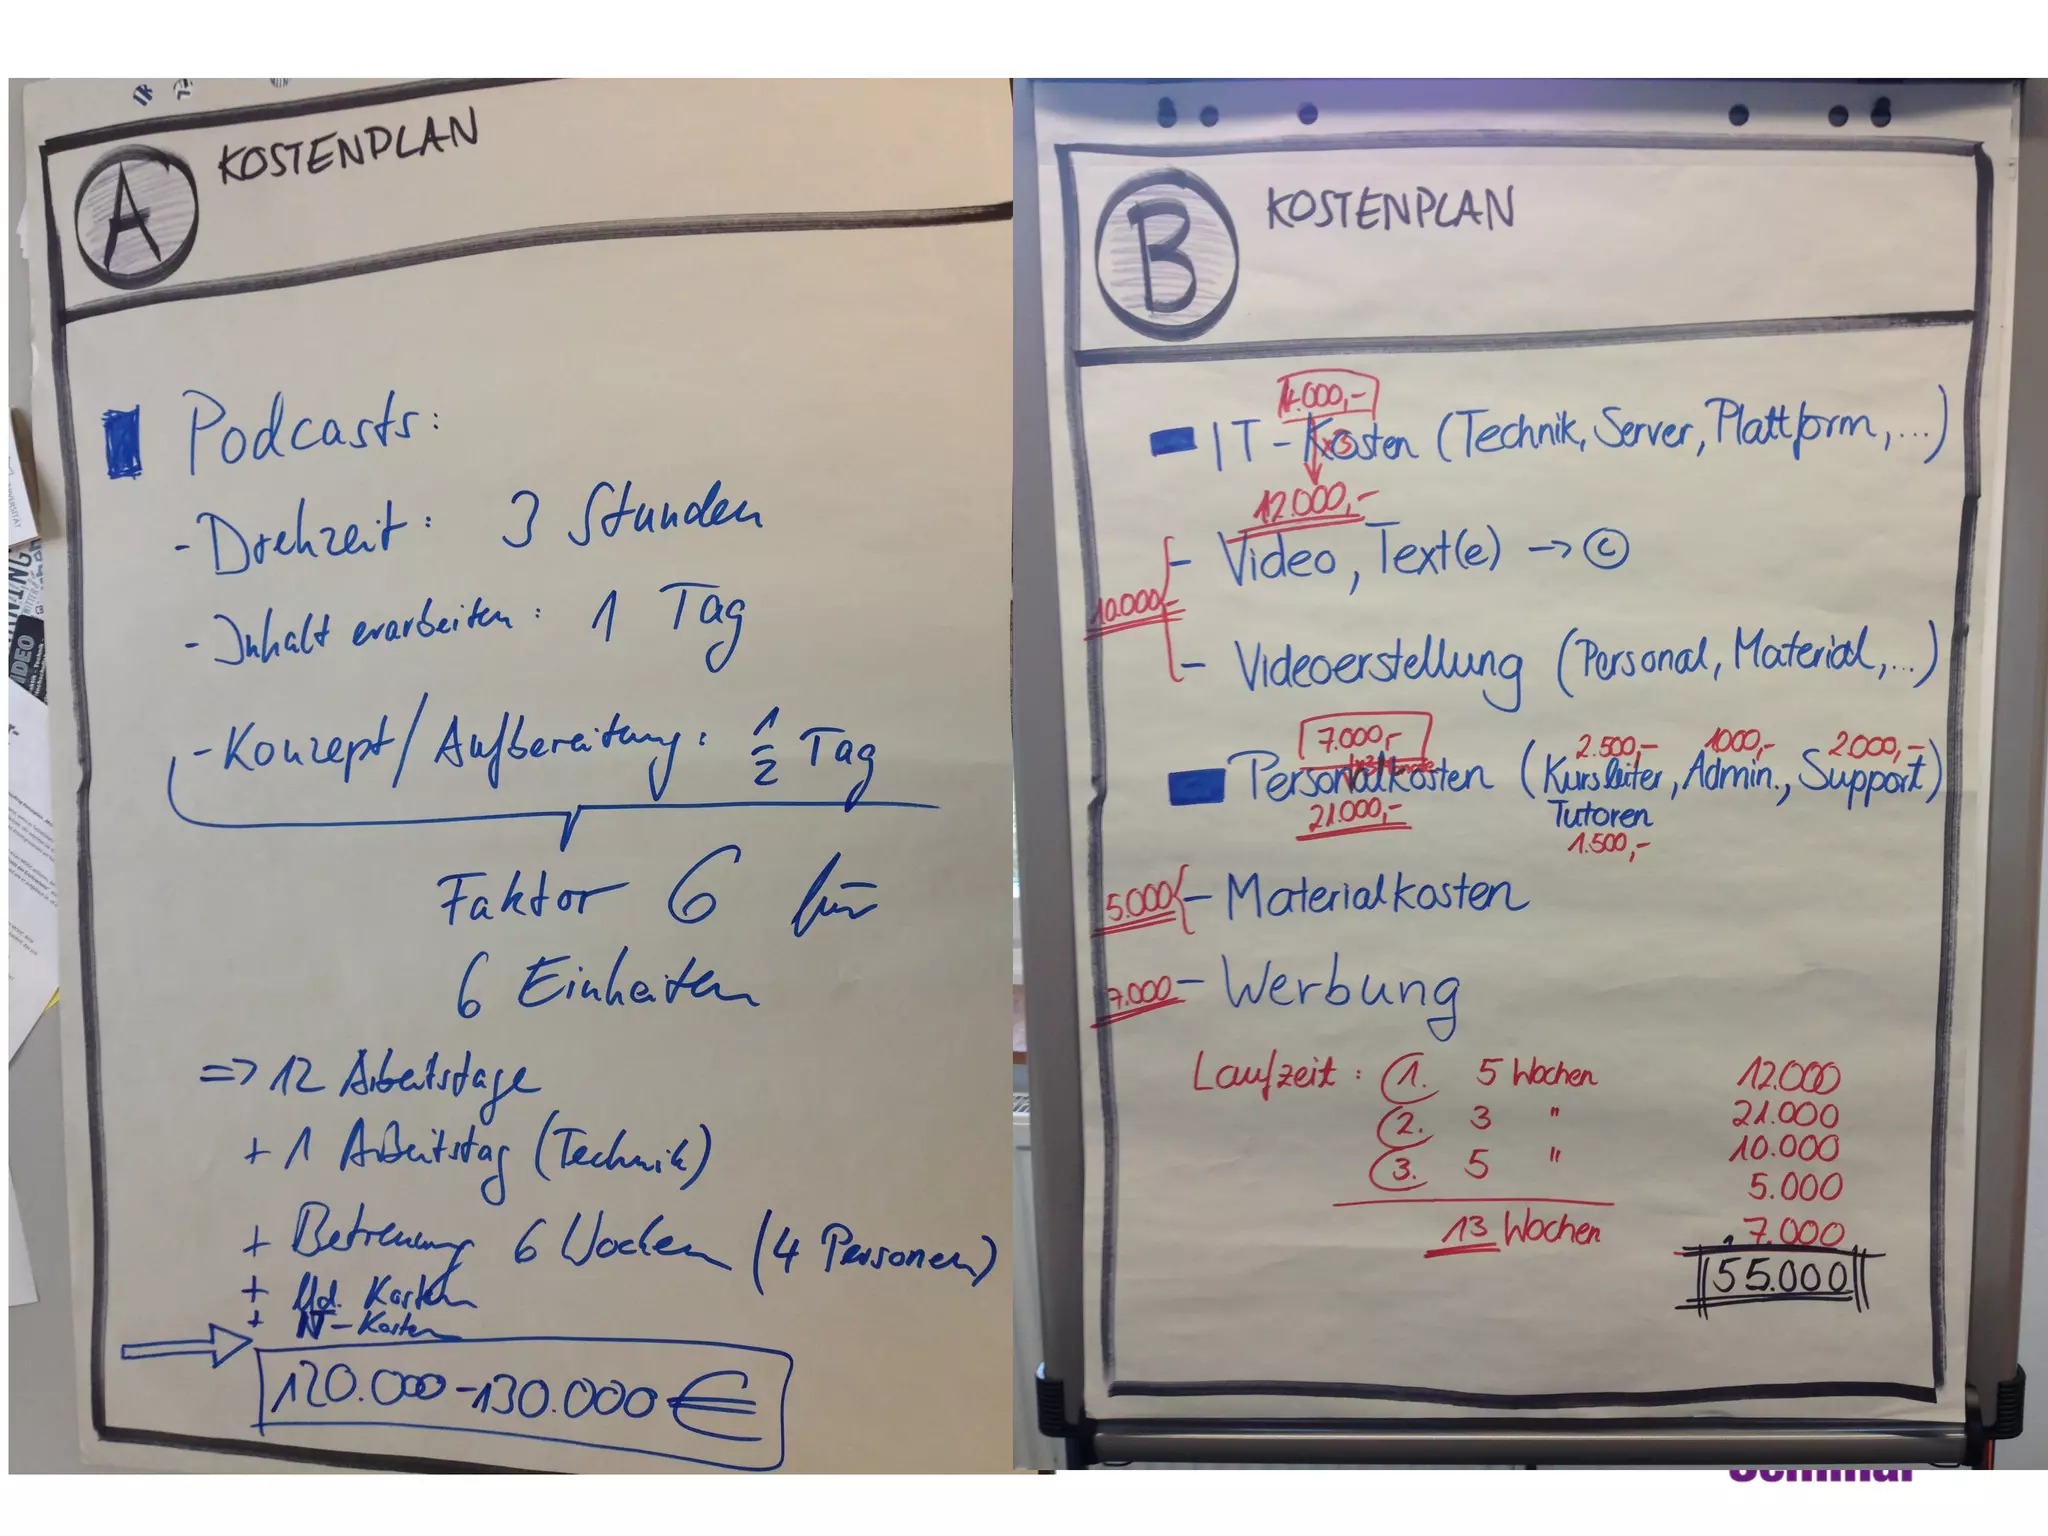 A
KOSTENPLAN
Podcasts:
- Drehzeit: 3 Stunden
- Inhalt erarbeiten: 1 Tag
- Konzept/Aufbereitung: 1/2 Tag
Faktor 6 für
6 Einheiten
=> 12 Arbeitstage
+ 1 Arbeitstag (Technik)
+ Betreuung 6 Wochen (4 Personen)
+ Kosten
+ IT-Kosten
120.000-130.000 €
B
KOSTENPLAN
4.000,-
IT-Kosten (Technik, Server, Plattform,...)
x3
12.000,-
- Video, Text(e) -> ©
10.000,-
- Videoerstellung (Personal, Material,...)
7.000,- 2.500,- 1000,- 2.000,-
Personalkosten (Kursleiter, Admin., Support)
21.000,- Tutoren
1.500,-
5.000 - Materialkosten
7.000 - Werbung
Laufzeit: 1. 5 Wochen 12.000
2. 3 " 21.000
3. 5 " 10.000
5.000
13 Wochen 7.000
55.000